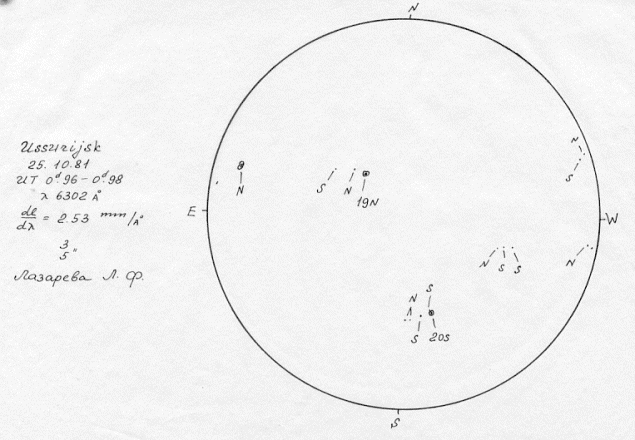 N
Ussurijsk
25. 10. 81
UT 0ᵈ96 – 0ᵈ98
λ 6302 Å
dℓ/dλ = 2.53 mm/Å
3
5"
Лазарева Л. Ф.
N
S
N
S
N
19N
E
W
N
S
S
N
N
S
S
20S
S